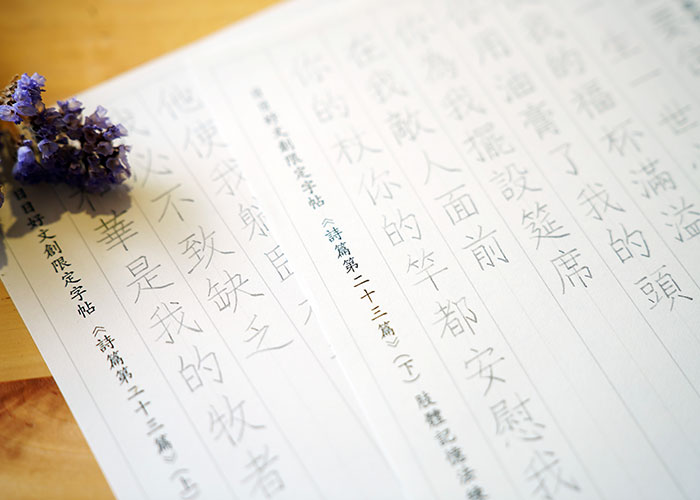 日日好文創限定字帖《詩篇第二十三篇》(上
和華是我的牧者
我必不致缺乏
他使我躺臥
日日好文創限定字帖《詩篇第二十三篇》(下) 肢體記憶法
你的杖你的竿都安慰我
在我敵人面前
你為我擺設筵席
你用油膏了我的頭
我的福杯滿溢
一生一世